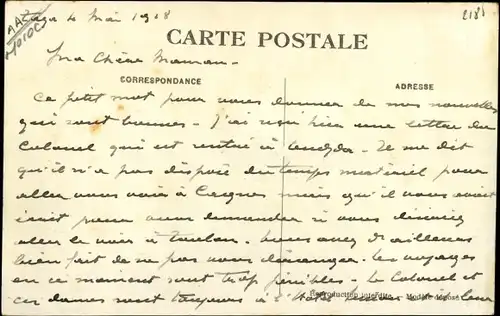 4 Mai 1918
2181
AAZ
MAROC
CARTE POSTALE
Ma Chère Maman -
CORRESPONDANCE
ADRESSE
Ce petit mot pour vous donner de mes nouvelles
qui sont bonnes - J'ai reçu hier une lettre du
Colonel qui est rentré à Oudjda - Il me dit
qu'il n'a pas disposé du temps matériel pour
aller vous voir à Cagnes mais qu'il vous avait
écrit pour vous demander si vous désiriez
aller le voir à Toulon. Vous avez d'ailleurs
bien fait de ne pas vous déranger. Les voyages
en ce moment sont trop pénibles - Le Colonel et
ces dames sont toujours à l'
Reproduction interdite - Modèle déposé